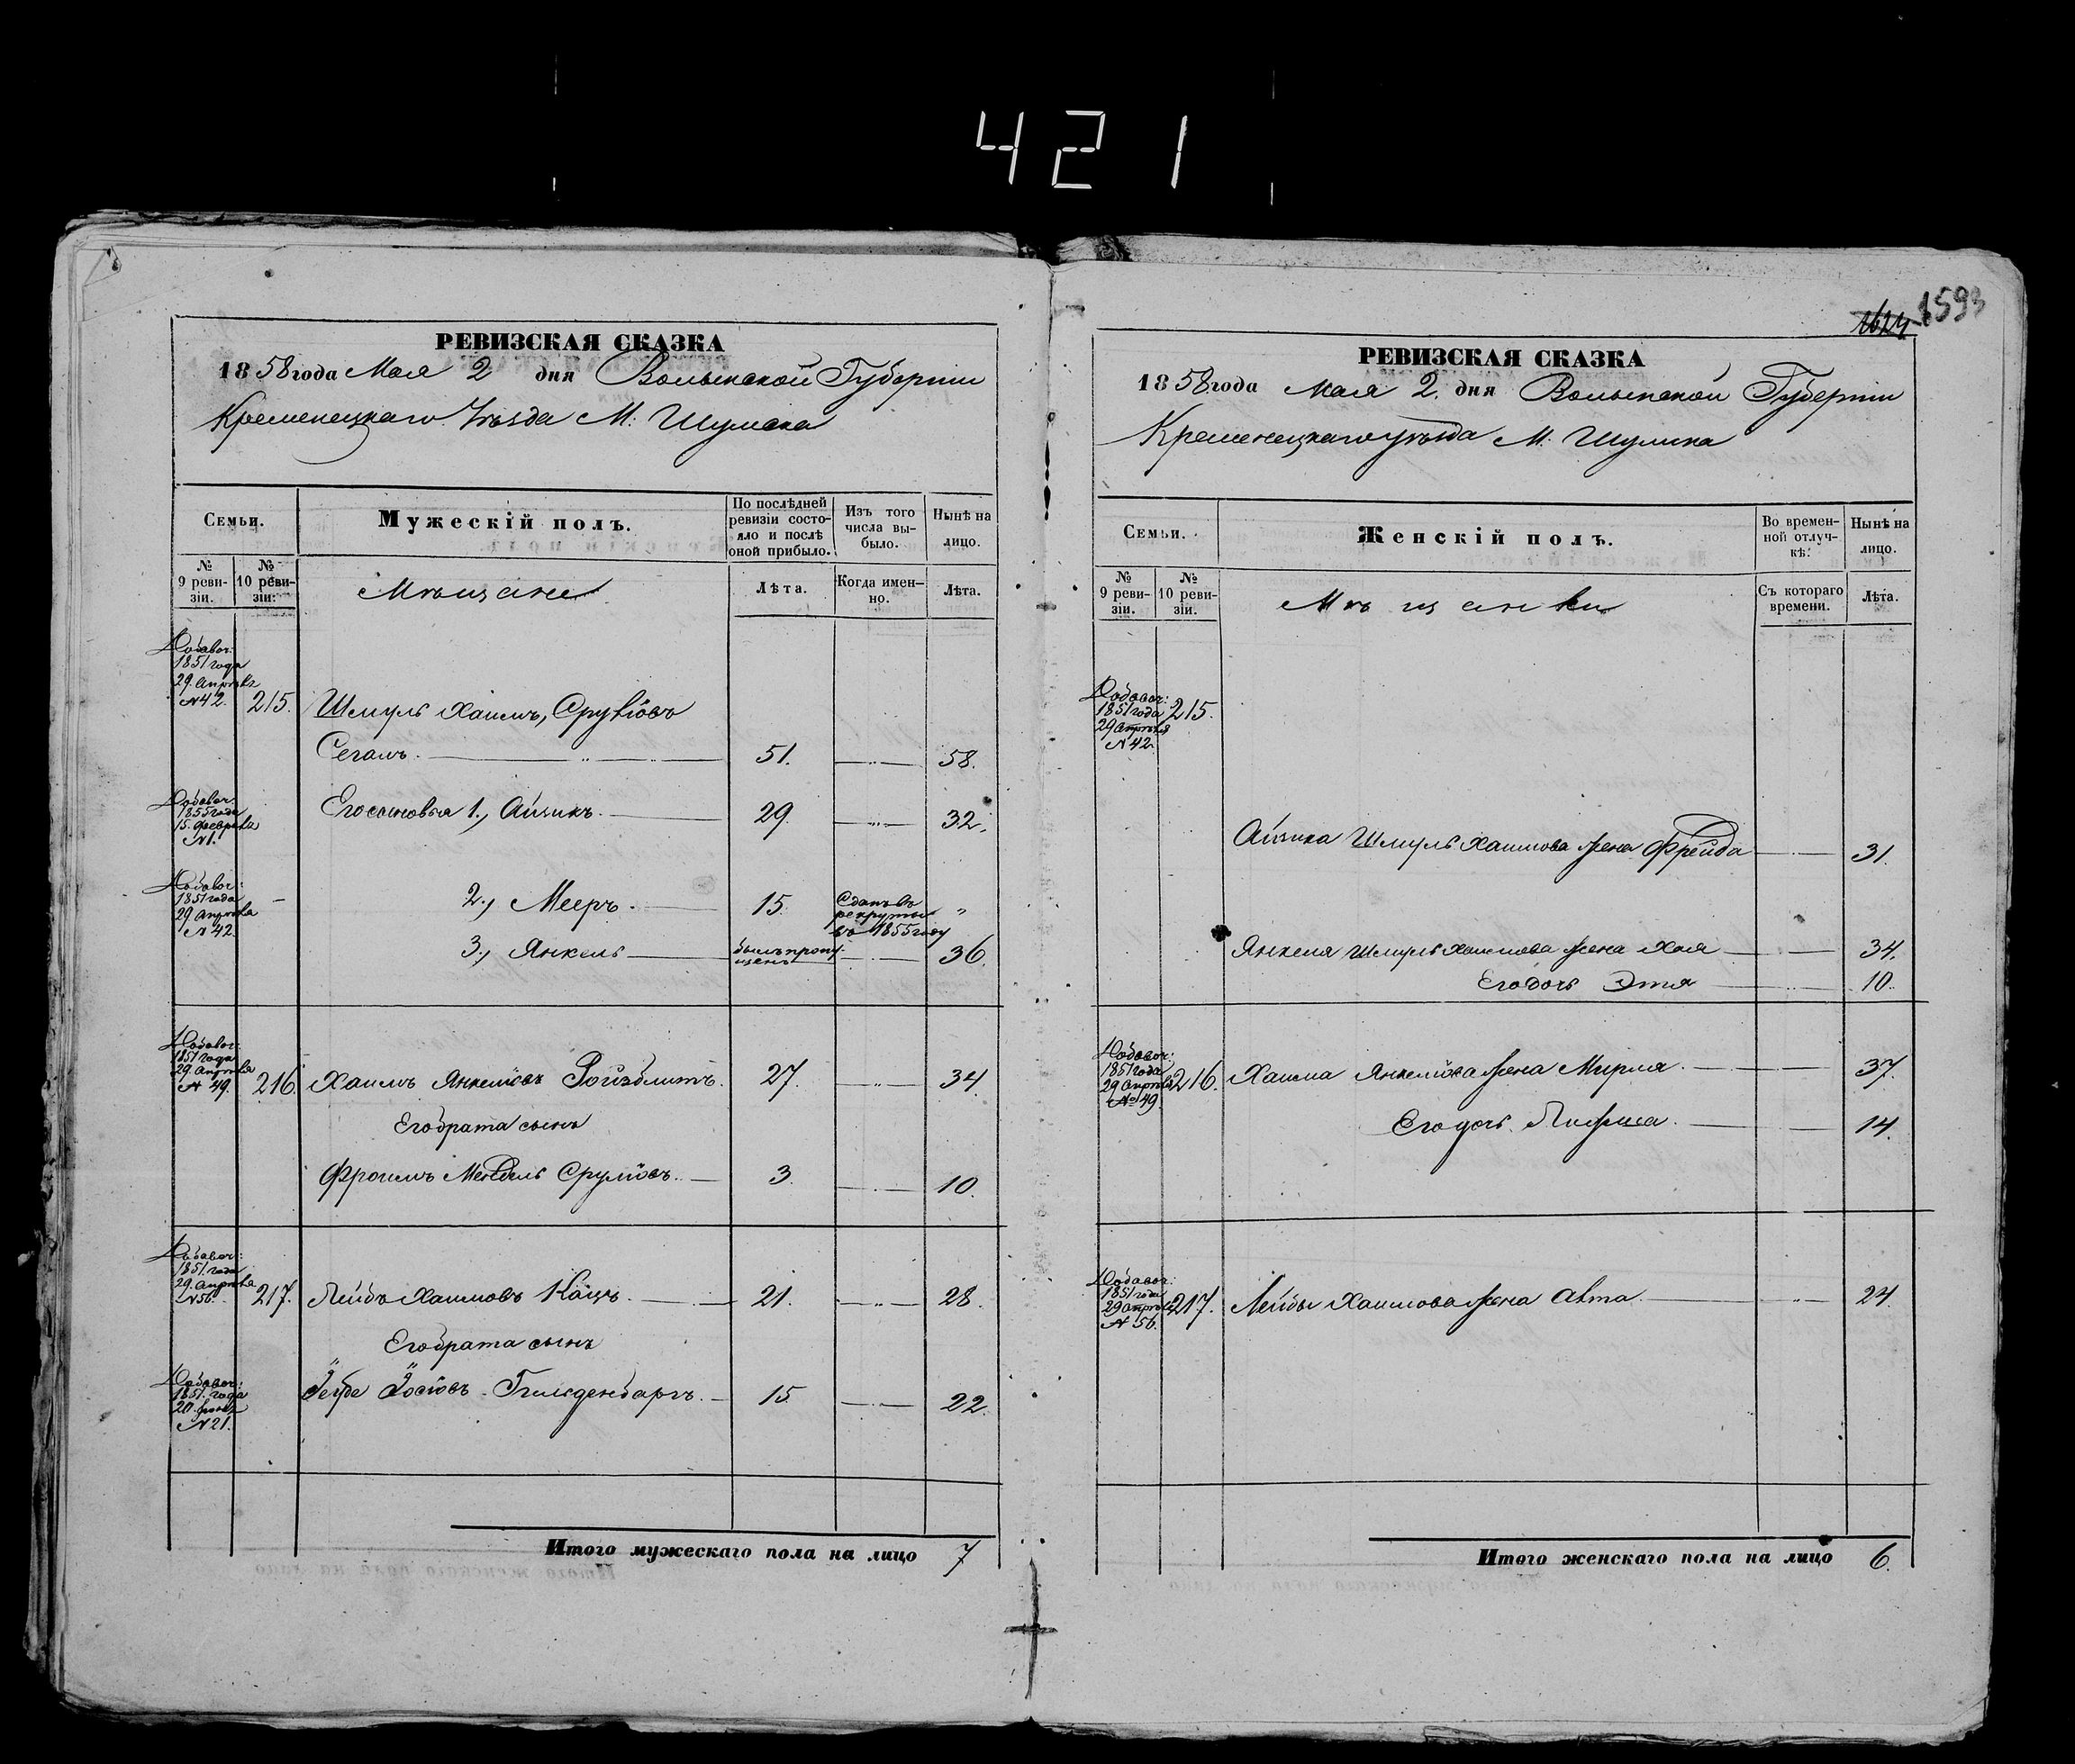 421
РЕВИЗСКАЯ СКАЗКА
1858 года Мая 2 дня Волынской Губернии
Кременецкаго Уѣзда М: Шумска
Семьи.
Мужескій полъ.
По послѣдней ревизіи состояло и послѣ оной прибыло.
Изъ того числа выбыло.
Нынѣ на лицо.
№ 9 ревизіи.
№ 10 ревизіи:
Мѣщане
Лѣта.
Когда именно.
Лѣта.
Добавоч: 1851 года 29. Апрѣля №42. 215. Шмуль Хаимъ, Сруліовъ
Сегалъ. 51. 58.
Добавоч: 1855 года 15. Февраля №1. Его сыновья 1., Айзикъ. 29. 32.
Добавоч: 1851 года 29 Апрѣля №42. – 2., Мееръ. 15. Сданъ въ рекруты въ 1855 году „
3., Янкель был пропущенъ 36.
Добавоч: 1851 года 29. Апрѣля № 49. 216. Хаимъ Янкеліовъ Ройзблитъ. 27. 34.
Его брата сынъ
Фроимъ Мендель Сруліовъ. 3. 10.
Добавоч: 1851. года 29. Апрѣля №56. 217. Лейбъ Хаимовъ Кацъ. 21. 28.
Его брата сынъ
Добавоч: 1851. года 20. №21. Іосіовъ 15. 22.
Итого мужескаго пола на лицо 7
1624
1593
РЕВИЗСКАЯ СКАЗКА
1858 года Мая 2. дня Волынской Губернии
Кременецкаго уѣзда М: Шумска
Семьи.
Женскій полъ.
Во временной отлучкѣ.
Нынѣ на лицо.
№ 9 ревизіи.
№ 10 ревизіи.
Мѣщанки
Съ котораго времени.
Лѣта.
Добавоч: 1851 года 29 Апрѣля №42. 215.
Айзика Шмуль Хаимова жена Фрейда 31.
Янкеля Шмуль Хаимова жена Хая 34.
Его дочь Этя 10.
Добавоч: 1851 года 29 Апрѣля № 49. 216. Хаима Янкеліова жена Мирля. 37.
Его дочь 14.
Добавоч: 1851 года 29 Апрѣля № 56. 217. Лейбы Хаимова жена 24.
Итого женскаго пола на лицо 6.